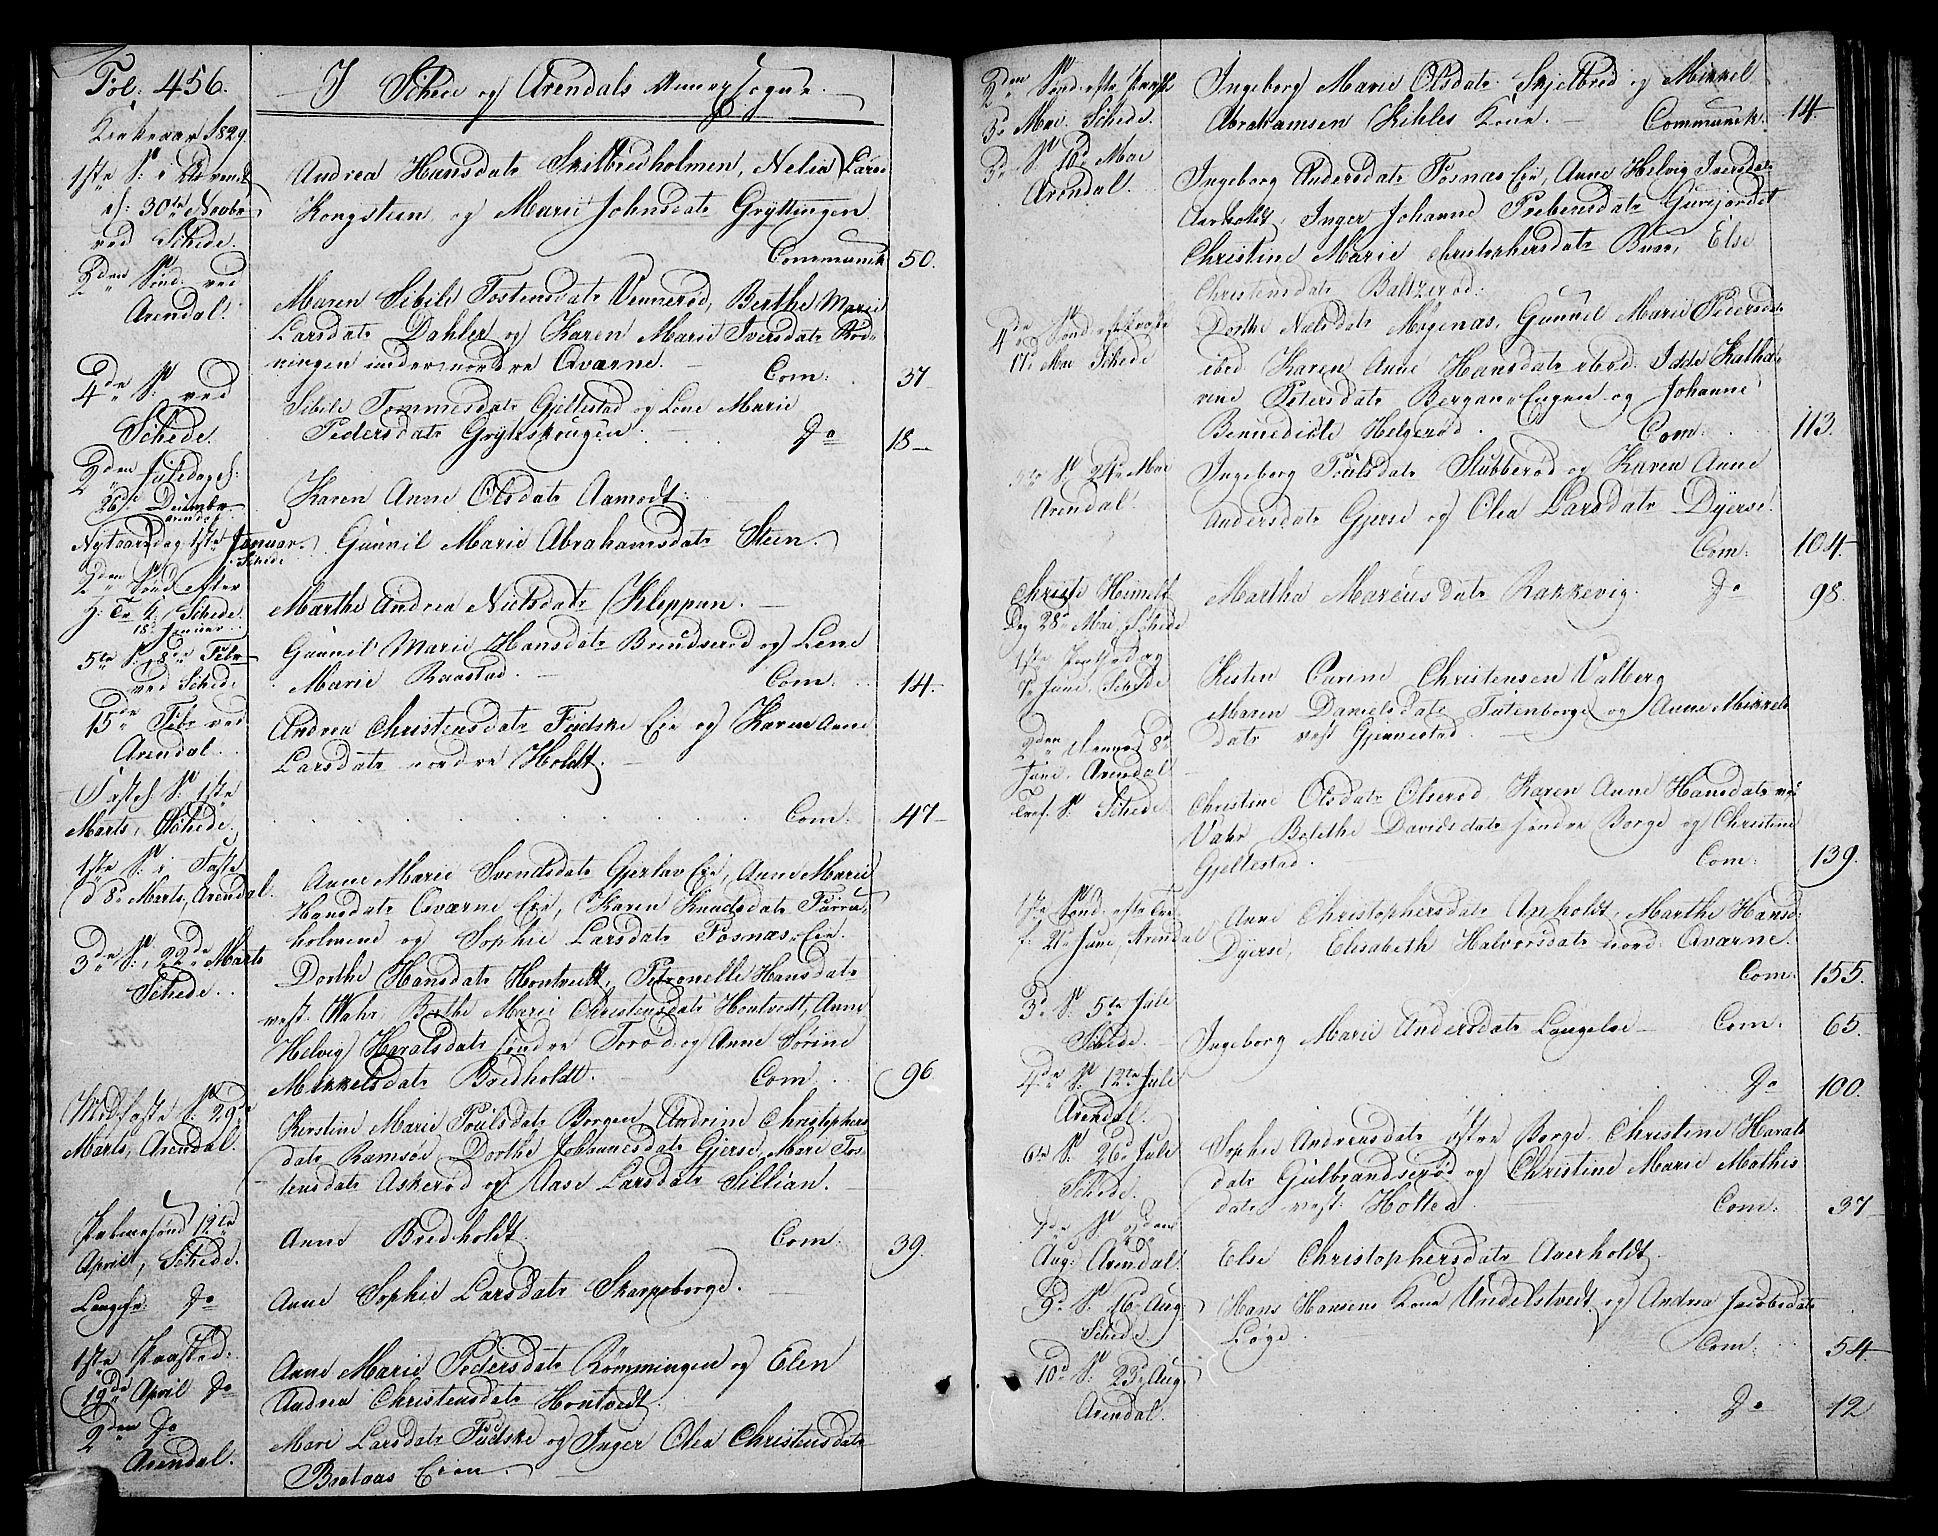 Fol: 456.
I Schee og Arendals Annexsogne.
Kirkeaar 1829
1ste S: i Advent
d: 30te Novbr
ved Schede.
Andrea Hansdatr Skilbredholmen, Nelia Lars
Kongsteen og Marie Johnsdatr Gryttingen
Communick 50.
2den Sønd: ved
Arendal.
Maren Sibile Tostensdatr Vennerød, Berthe Marie
Larsdatr Dahler og Karen Marie Iversdatr Rød-
ningen under nordre Qvarne. Com: 37
4de S: ved
Schede.
Sibile Tommesdatr Gjellestad og Lene Marie
Pedersdatr Gryteskougen. Do 18
2den Juledag
26de Decembr
Arendal
Karen Anne Olsdatr Aamodt.
Nytaarsdag 1ste Januar.
Schede
Gunnil Marie Abrahamsdatr Steen.
2den Sønd efter
Schede
18de Januar
Marthe Andrea Nielsdatr Kleppan.
5te S: 8de Febr
ved Schede
Gunnil Marie Hansdatr Brendserød og Lene
Marie Raastad. Com: 14.
15de Febr ved
Arendal
Andrea Christensdatr Fudske Eie og Karen Anne
Larsdatr nordre Holdt.
Fastel. S: 1ste
Marts, Schede.
Com: 47
1ste S: i Faste
d 8de Marts, Arendal.
Anne Marie Svendsdatr Gjerlav Eie, Anne Marie
Hansdatr Qvarne Eie, Karen Knudsdatr Furru-
holmene og Sophie Larsdatr Fosnas Eie.
3de S: 22de Marts
Schede.
Dorthe Hansdatr Hontvedt, Petronelle Hansdatr
vest. Wahr, Berthe Marie Christensdatr Hontvedt, Anne
Helvig Haralsdatr søndre Torød og Anne Sørine
Mikkelsdatr Bredholdt. Com 96
Midfaste S: 29de
Marts, Arendal.
Kirstine Marie Poulsdatr Borgen, Andrine Christophers
datr Ramsøe, Dorthe Johannesdatr Gjerse, Mari Tos-
tensdatr Askerød og Aase Larsdatr Sillian.
Palmesønd 12te
April, Schede.
Anne Bredholdt. Com: 39.
Langefr: Do
Anne Sophie Larsdatr Skarpeborge.
1ste Paasked:
19de April Do
Anne Marie Pedersdatr Rømmingen og Elen
Andrea Christensdatr Hontvedt.
2den Do
Arendal.
Mari Larsdatr Fudske og Inger Olea Christensdatr
Brataas Eien.
2den Sønd: efter Paaske
3de Mai. Schede.
Ingeborg Marie Olsdatr Skjelbred og Mikkel
Abrahamsen Kihles Kone. Communick: 14.
3de S: 10de Mai
Arendal.
Ingeborg Andersdatr Fosnas Eie, Anne Helvig Iversdatr
Aarholdt, Inger Johanne Prebensdatr Gurijordet
Christine Marie Christophersdatr Buer, Else
Christensdatr Baltzerød.
4de Sønd: efter Paaske
17de Mai Schede
Dorthe Nielsdatr Mejenas, Gunnil Marie Pedersdatr
ibed Karen Anne Hansdatr ibed: Idde Katha-
rine Petersdatr Bergan-Engen og Johanne
Bennedicte Helgerød. Com: 113.
5te S: 24de Mai
Arendal.
Ingeborg Poulsdatr Stubberød og Karen Anne
Andersdatr Gjerse og Olea Larsdatr Dyerse.
Com: 104
Christi Himmelf
Dag 28de Mai, Schede
Martha Marcus datr Rakkevig. Do 98.
1ste Pintsedag
7de Juni, Schede
Kisten Carine Christensen Valberg
2den 8de
Juni, Arendal
Maren Danielsdatr Tutenborge og Anne Mikkels
datr vest Gjennestad.
Tref. S: Schede
Christine Olsdatr Olserød Karen Anne Hansdatr
Vahr Bolethe Davidsdatr søndre Borge og Christine
Gjellestad. Com: 139.
1ste Sønd: efter Tre
f: 21de Juni, Arendal
Anne Christophersdatr Anholdt, Marthe Hansd:
Dyerse, Elisabeth Halvorsdatr nord: Qvarne.
Com: 155.
3de S: 5te Juli
Schede.
Ingeborg Marie Andersdatr Langelse Com: 65.
4de S: 12te Juli
Arendal.
Do 100.
6te S: 26de Juli
Schede.
Sophie Andreasdatr østre Borge, Christine Harals
datr Gulbrandserød og Christine Marie Mathis
datr vest: Holtea. Com: 37
Aug: Arendal
Else Christophersdatr Aaerholdt.
9de S: 16de Aug
Schede
Hans Hansens Kone Undelstvedt og Andrea Jacobsdatr
Løge. Com: 54
10de S: 23de Aug
Arendal.
Do 12